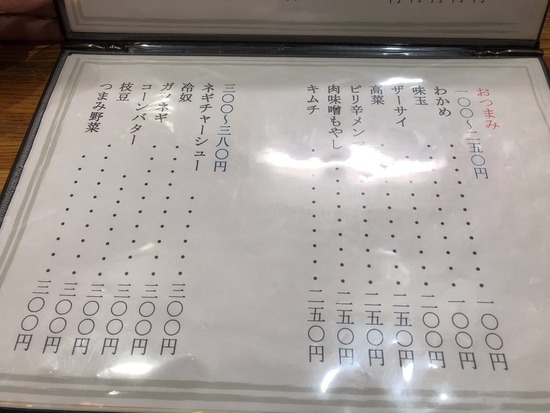 おつまみ
一〇〇〜二五〇円
わかめ・・・・・・・・・・一〇〇円
味玉・・・・・・・・・・一〇〇円
ザーサイ・・・・・・・・・・二〇〇円
高菜・・・・・・・・・・二五〇円
ピリ辛メンマ・・・・・・・・二五〇円
肉味噌もやし・・・・・・・・二五〇円
キムチ・・・・・・・・・・二五〇円
三〇〇〜三八〇円
ネギチャーシュー・・・・・・三〇〇円
冷奴・・・・・・・・・・三〇〇円
・・・・・・・・・・三〇〇円
コーンバター・・・・・・・・三〇〇円
枝豆・・・・・・・・・・三〇〇円
つまみ野菜・・・・・・・・三〇〇円